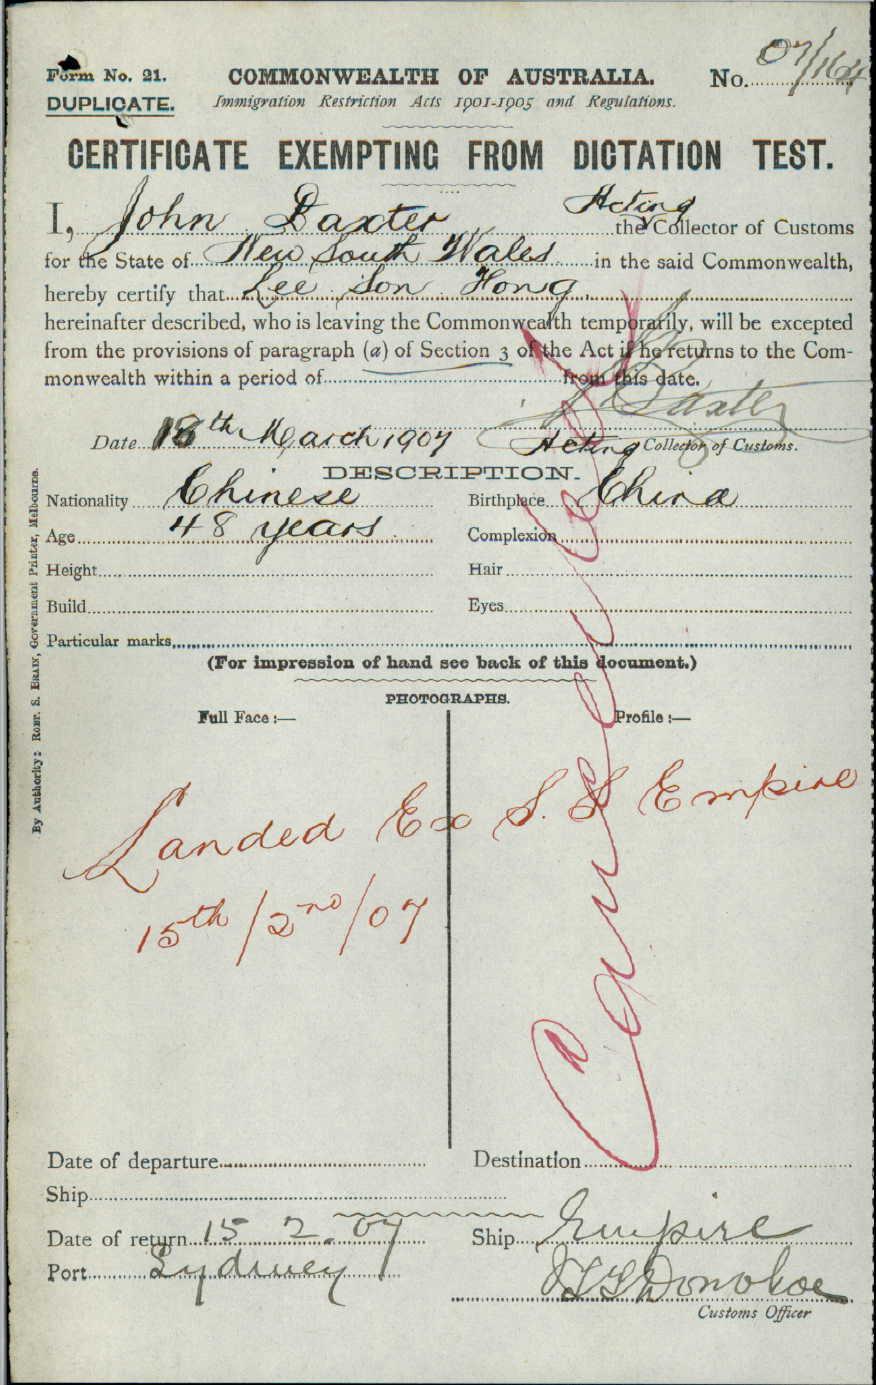 Form No. 21.
DUPLICATE.
COMMONWEALTH OF AUSTRALIA.
Immigration Restriction Acts 1901-1905 and Regulations.
No. 07/164
CERTIFICATE EXEMPTING FROM DICTATION TEST.
I, John Baxter the Acting Collector of Customs
for the State of New South Wales in the said Commonwealth,
hereby certify that Lee Son Hong
hereinafter described, who is leaving the Commonwealth temporarily, will be excepted
from the provisions of paragraph (a) of Section 3 of the Act if he returns to the Com-
monwealth within a period of from this date.
Baxter
Date 18th March 1907 Acting Collector of Customs.
DESCRIPTION.
Nationality Chinese Birthplace China
Age 48 years Complexion
Height Hair
Build Eyes
Particular marks
(For impression of hand see back of this document.)
PHOTOGRAPHS.
Full Face :— Profile :—
Landed Ex S. S Empire
15th/2nd/07
Cancelled
Date of departure Destination
Ship
Date of return 15 2. 07 Ship Empire
Port Sydney
Donohoe
Customs Officer
By Authority: ROBT. S. BRAIN, Government Printer, Melbourne.